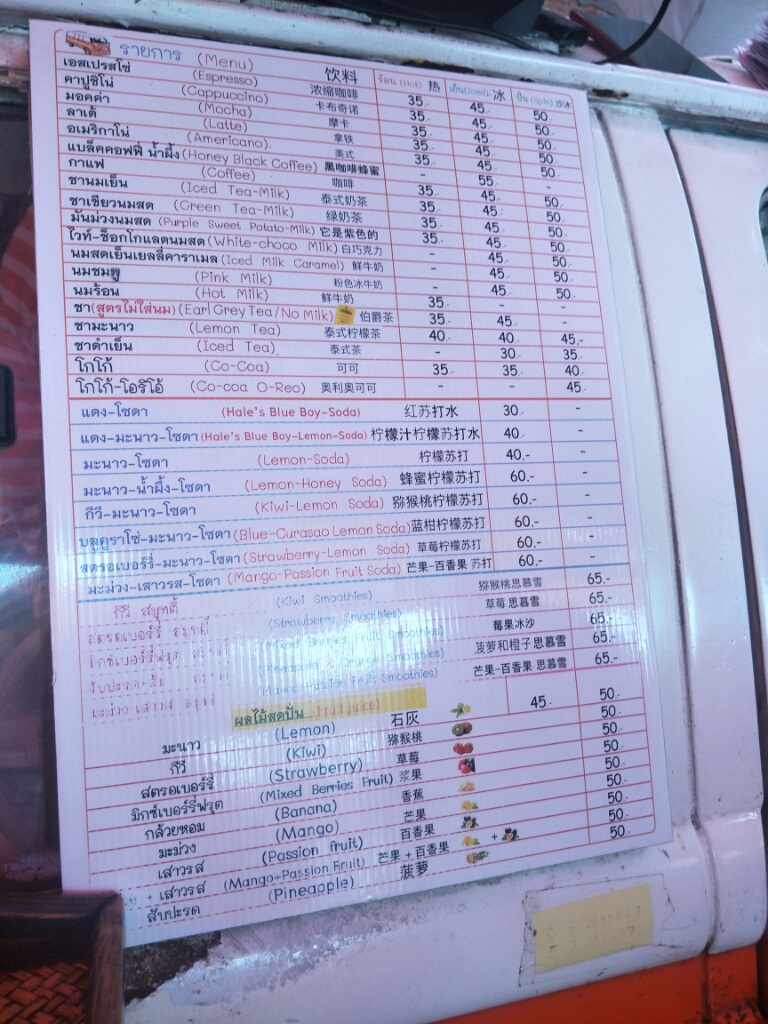 รายการ (Menu) 饮料 ร้อน (Hot) 热 เย็น(Iced) 冰 ปั่น (Spin) 沙冰
เอสเปรสโซ่ (Espresso) 浓缩咖啡 35.- 45.- 50.-
คาปูชิโน่ (Cappuccino) 卡布奇诺 35.- 45.- 50.-
มอคค่า (Mocha) 摩卡 35.- 45.- 50.-
ลาเต้ (Latte) 拿铁 35.- 45.- 50.-
อเมริกาโน่ (Americano) 美式 35.- 45.- 50.-
แบล็คคอฟฟี่ น้ำผึ้ง (Honey Black Coffee) 黑咖啡蜂蜜 - 55.- -
กาแฟ (Coffee) 咖啡 35.- 45.- 50.-
ชานมเย็น (Iced Tea-Milk) 泰式奶茶 35.- 45.- 50.-
ชาเขียวนมสด (Green Tea-Milk) 绿奶茶 35.- 45.- 50.-
มันม่วงนมสด (Purple Sweet Potato-Milk) 它是紫色的 35.- 45.- 50.-
ไวท์-ช็อกโกแลตนมสด (White-choco Milk) 白巧克力 - 45.- 50.-
นมสดเย็นเยลลี่คาราเมล (Iced Milk Caramel) 鲜牛奶 - 45.- 50.-
นมชมพู (Pink Milk) 粉色冰牛奶 - 45.- 50.-
นมร้อน (Hot Milk) 鲜牛奶 35.- - -
ชา(สูตรไม่ใส่นม) (Earl Grey Tea/No Milk) 伯爵茶 35.- 45.- -
ชามะนาว (Lemon Tea) 泰式柠檬茶 40.- 40.- 45.-
ชาดำเย็น (Iced Tea) 泰式茶 - 30.- 35.-
โกโก้ (Co-Coa) 可可 35.- 35.- 40.-
โกโก้-โอริโอ้ (Co-coa O-Reo) 奥利奥可可 - - 45.-
แดง-โซดา (Hale's Blue Boy-Soda) 红苏打水 30.- -
แดง-มะนาว-โซดา (Hale's Blue Boy-Lemon-Soda) 柠檬汁柠檬苏打水 40.- -
มะนาว-โซดา (Lemon-Soda) 柠檬苏打 40.- -
มะนาว-น้ำผึ้ง-โซดา (Lemon-Honey Soda) 蜂蜜柠檬苏打 60.- -
กีวี-มะนาว-โซดา (Kiwi-Lemon Soda) 猕猴桃柠檬苏打 60.- -
บลูคูราโซ่-มะนาว-โซดา (Blue-Curasao Lemon Soda) 蓝柑柠檬苏打 60.- -
สตรอเบอร์รี่-มะนาว-โซดา (Strawberry-Lemon Soda) 草莓柠檬苏打 60.- -
มะม่วง-เสาวรส-โซดา (Mango-Passion Fruit Soda) 芒果-百香果 苏打 60.- -
กีวี สมูทตี้ (Kiwi Smoothies) 猕猴桃思慕雪 65.-
สตรอเบอร์รี่ สมูทตี้ (Strawberry Smoothies) 草莓 思慕雪 65.-
มิกซ์เบอร์รี่ฟรุต (Mixed Berries Fruit Smoothies) 莓果冰沙 65.-
(Pineapple & Orange Smoothies) 菠萝和橙子思慕雪 65.-
มะม่วง เสาวรส (Mango-Passion Fruit Smoothies) 芒果-百香果 思慕雪 65.-
ผลไม้สดปั่น (Fruit juice)
มะนาว (Lemon) 石灰 45.- 50.-
กีวี (Kiwi) 猕猴桃 50.-
สตรอเบอร์รี่ (Strawberry) 草莓 50.-
มิกซ์เบอร์รี่ฟรุต (Mixed Berries Fruit) 浆果 50.-
กล้วยหอม (Banana) 香蕉 50.-
มะม่วง (Mango) 芒果 50.-
เสาวรส (Passion fruit) 百香果 50.-
+ เสาวรส (Mango+Passion Fruit) 芒果 + 百香果 + 50.-
สับปะรด (Pineapple) 菠萝 50.-